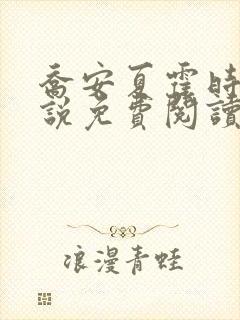 喬安夏霆時
說免費閱讀
浪漫青蛙